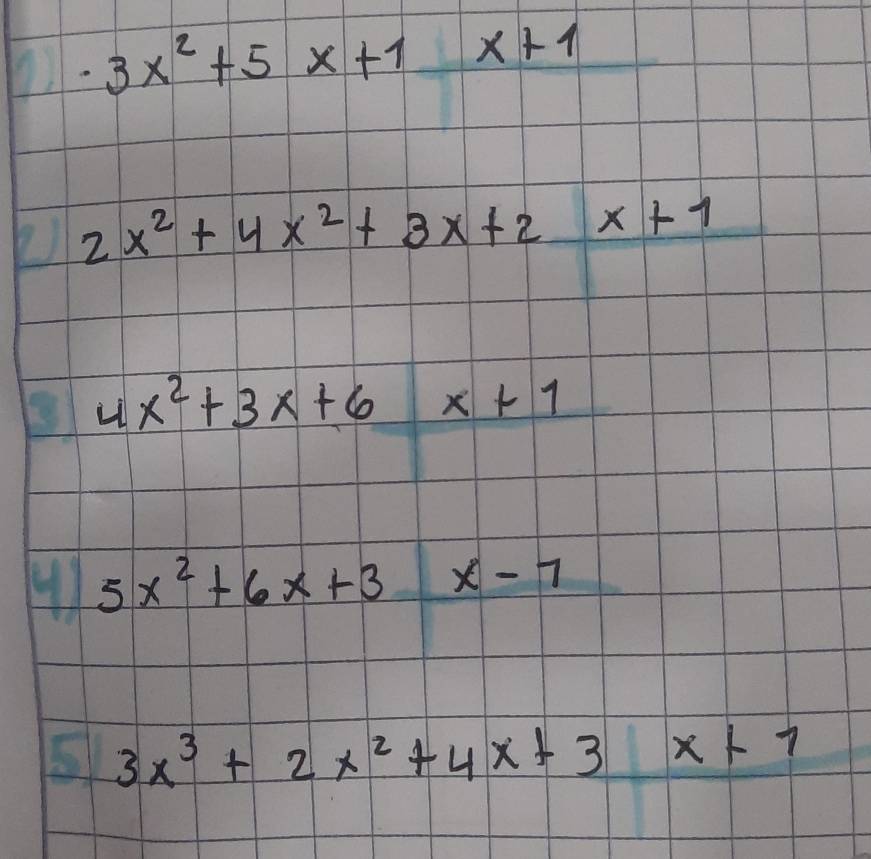 1) -3x² + 5x + 1 | x + 1
2) 2x² + 4x² + 3x + 2 | x + 1
3) 4x² + 3x + 6 | x + 1
4) 5x² + 6x + 3 | x - 1
5) 3x³ + 2x² + 4x + 3 | x + 1